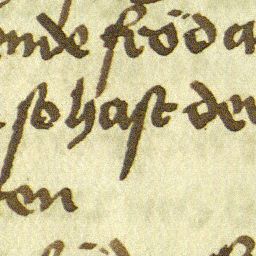 ende fröd a
so hast den
en